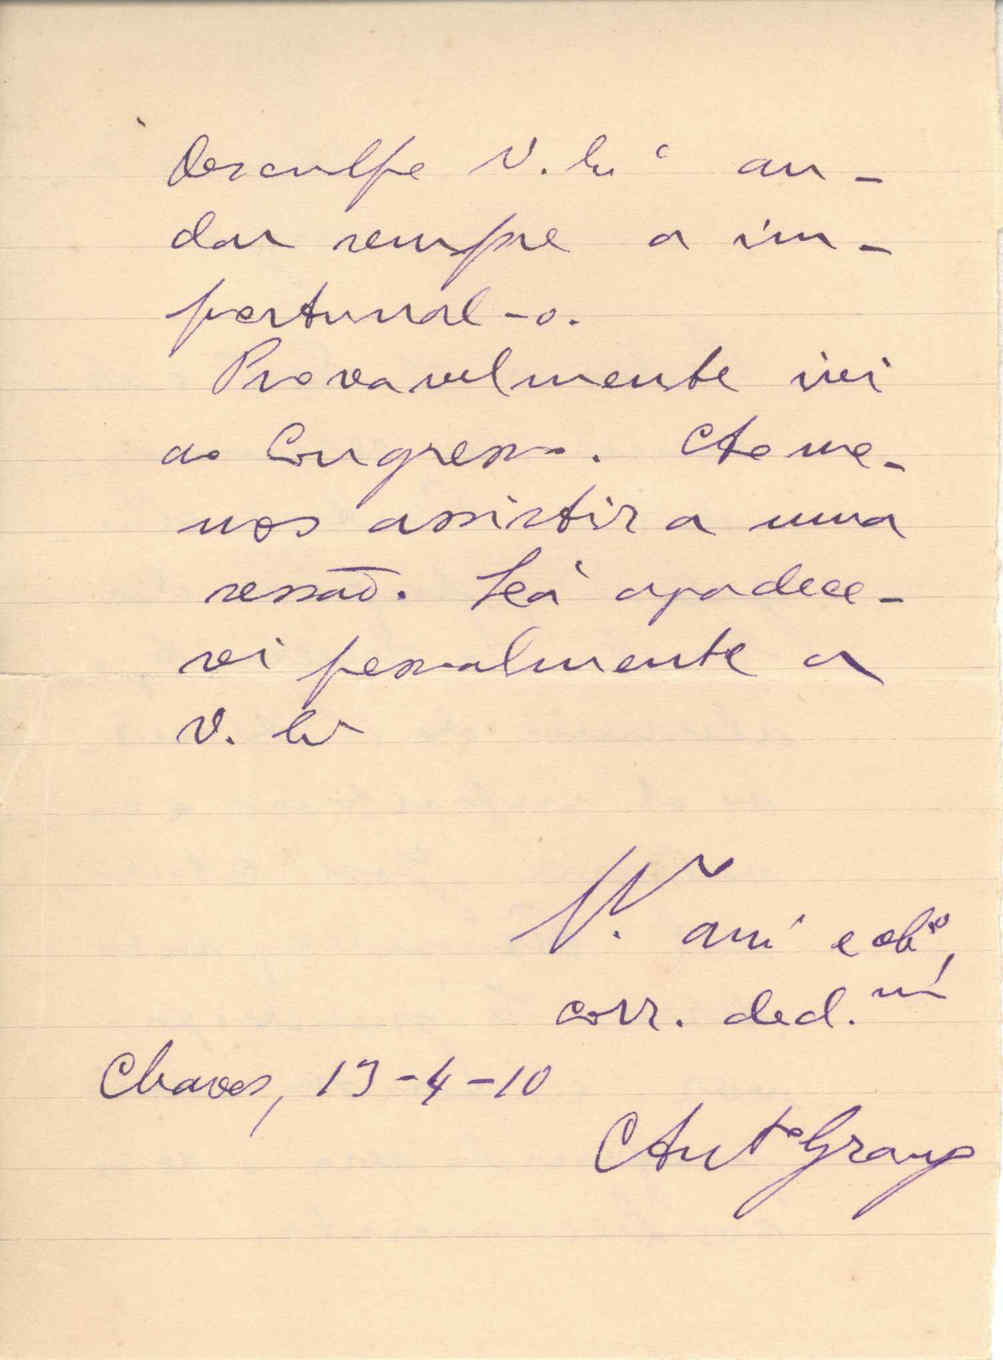 Desculpe V. Exª an-
dar sempre a im-
portunal-o.
Provavelmente irei
ao Congresso. Ao me-
nos assistir a uma
sessão. Lá agradece-
rei pessoalmente a
V. Ex
V. amº e obº,
corr. ded.mº
Chaves, 19-4-10
Antº Granjo